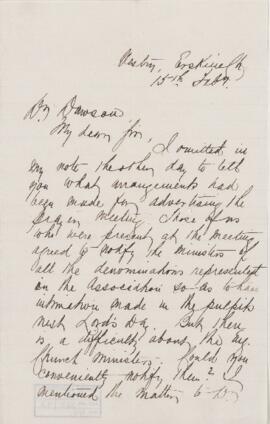 Vestry, Erskine Ch.
15th Feby.
Dr Dawson
My dear Sir,
I omitted in
my note the other day to tell
you what arrangements had
been made for advertising the
prayer meeting. Those of us
who were present at the meeting
agreed to notify the ministers of
all the denominations represented
in the Association so as to have
intimation made in the pulpits
next Lord's Day. But there
is a difficulty about the Eng.
Church Ministers. Could you
conveniently notify them? I
mentioned the matter to Dr